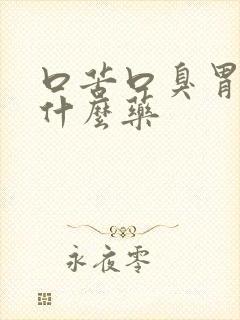 口苦口臭胃
什麼藥
永夜零